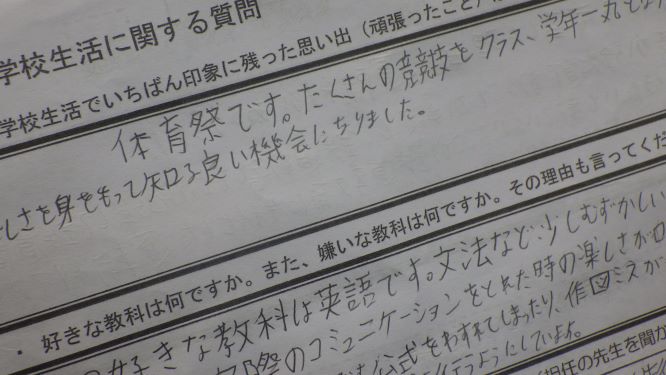 学校生活に関する質問
学校生活でいちばん印象に残った思い出（頑張ったこと）は
体育祭です。たくさんの競技をクラス、学年一丸とな
しさを身をもって知る良い機会になりました。
・ 好きな教科は何ですか。また、嫌いな教科は何ですか。その理由も言ってくだ
好きな教科は英語です。文法など少しむずかしい
際のコミュニケーションをとれた時の楽しさが
公式をわすれてしまったり、作図ミスが
ようにしています。
担任の先生を聞か